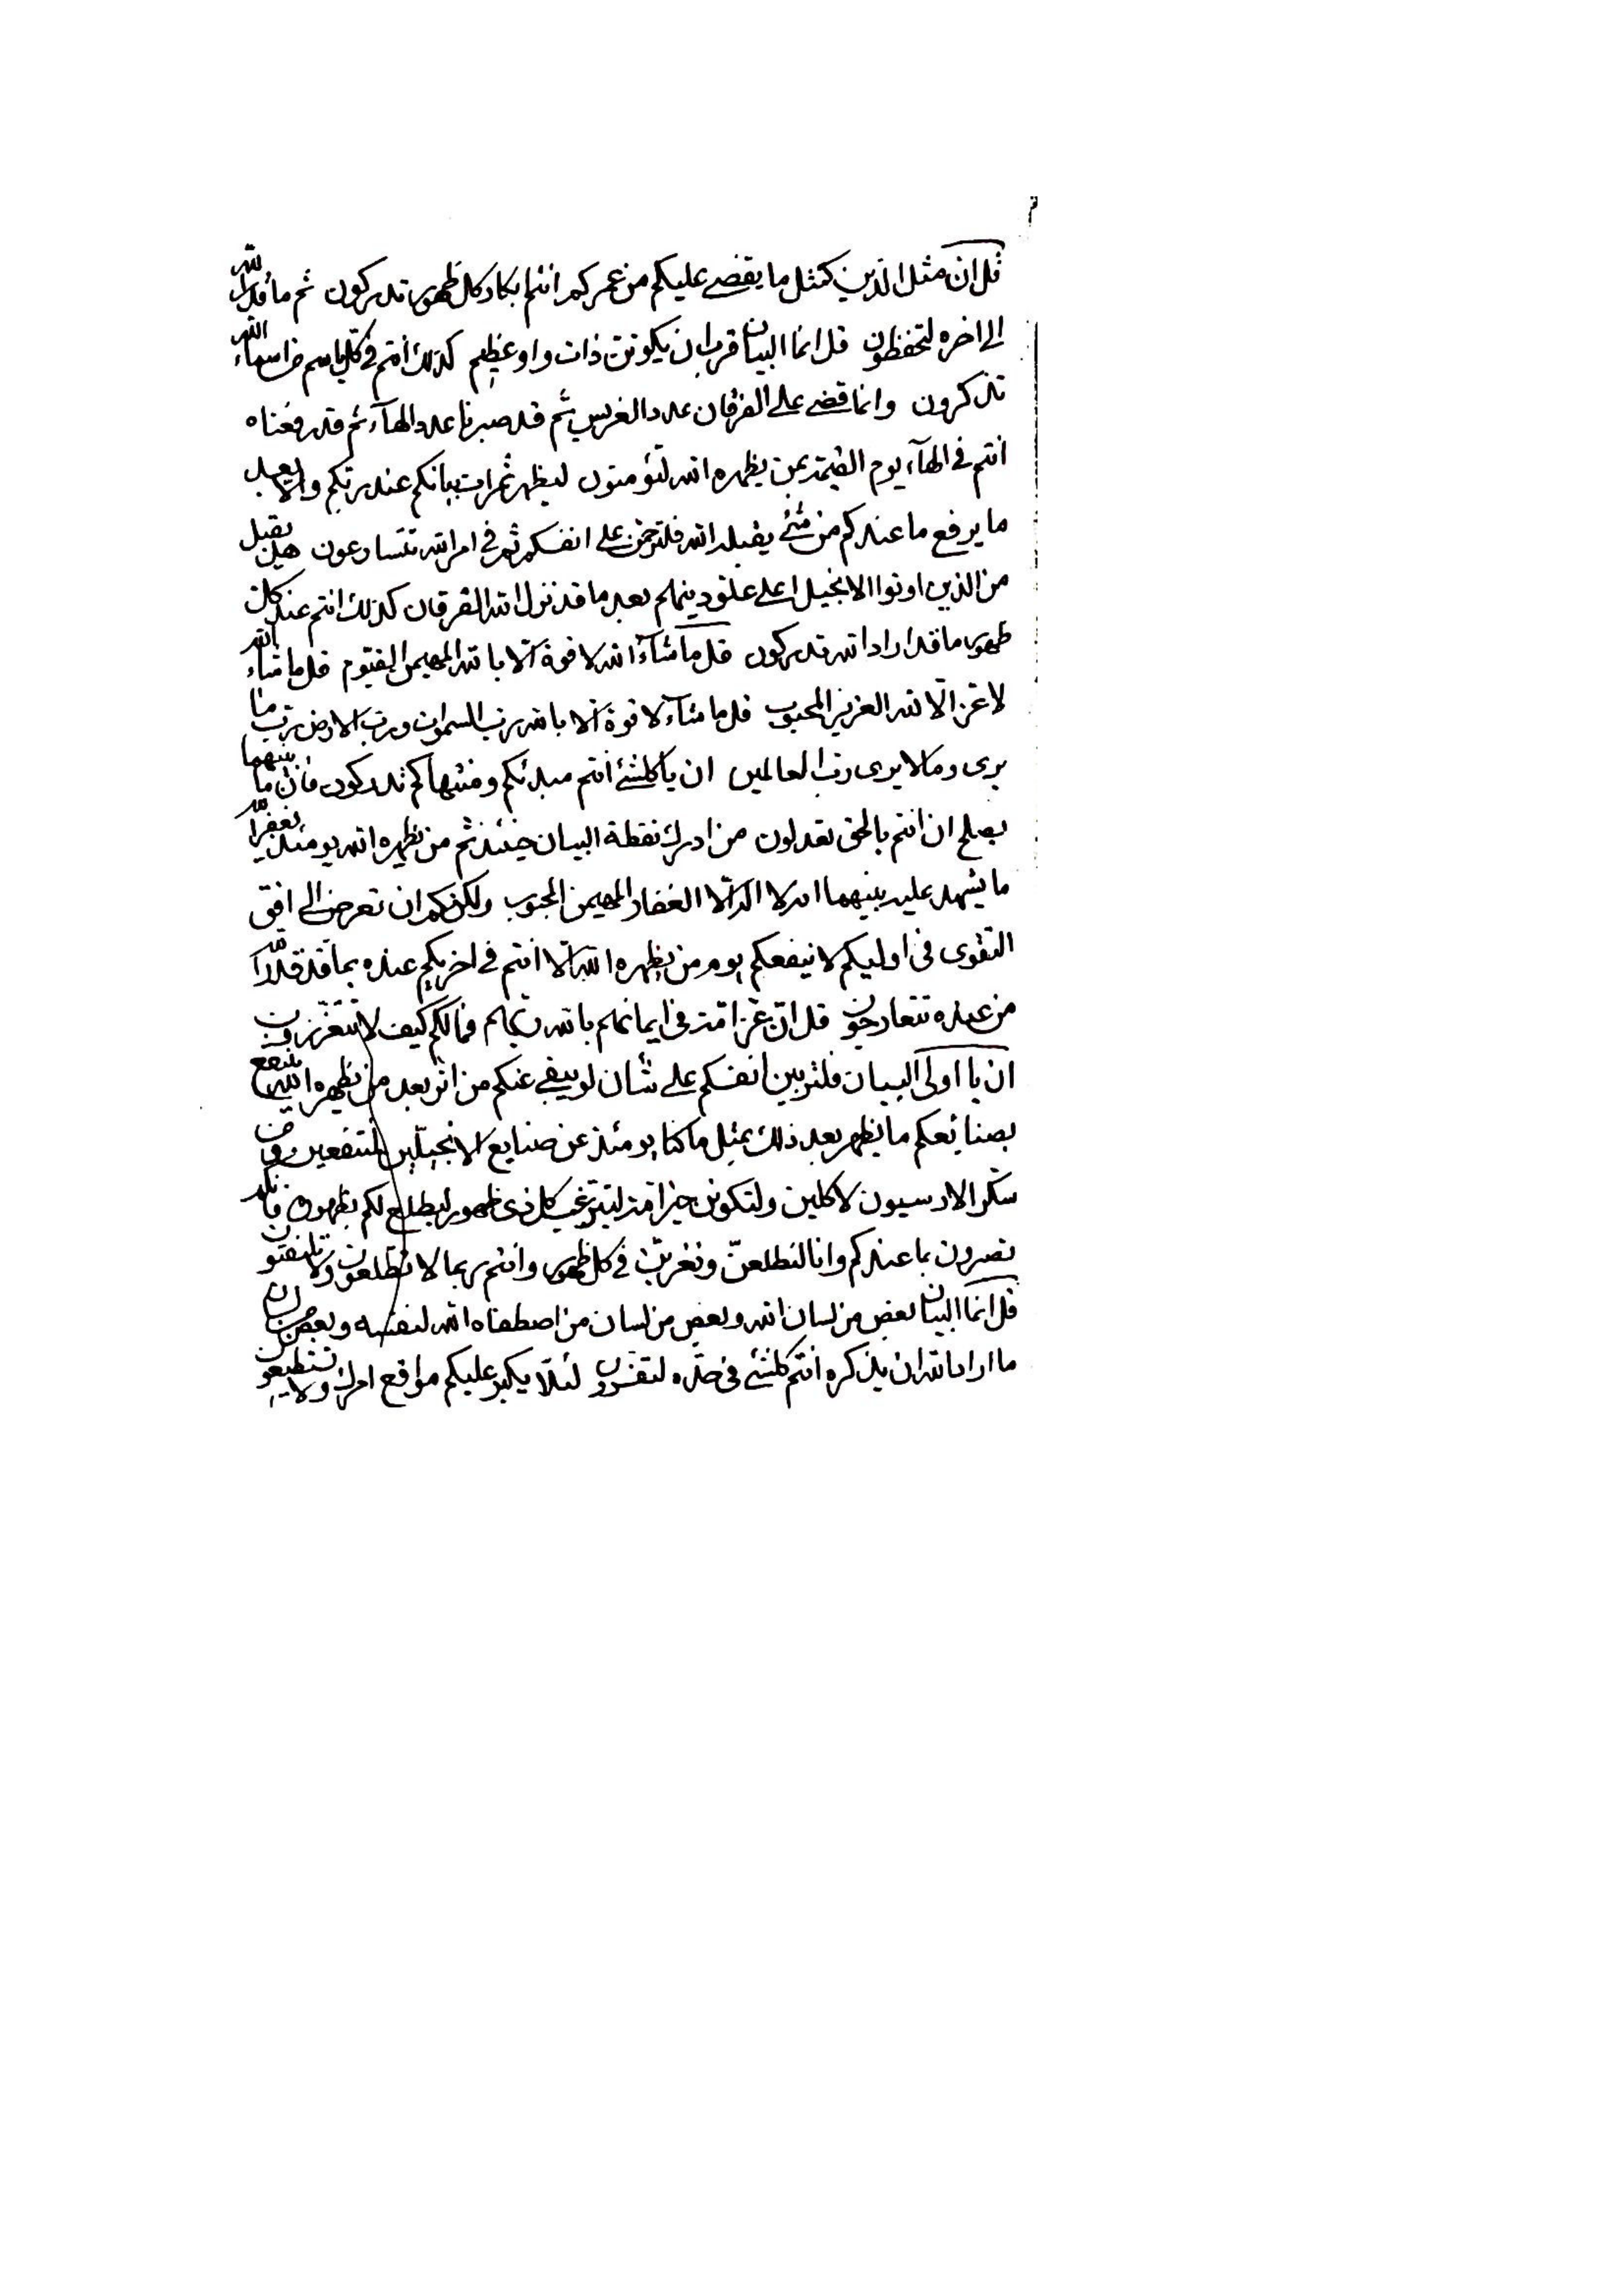 قل ان مثل الذين كمثل ما يقضى عليكم من عمركم انتم بكاد كل ظهور تدركون ثم ما قد
الى اخره لتحفظون قل انما البيان قرب ان يكونن ذات واو عظيم كذلك انتم فى كل اسم من اسماء الله
تذكرون وانما قضى على الفرقان عدد الغرس ثم قد صبرنا عدد الهاء ثم قد رفعناه
انتم فى الهآء يوم القيمة بمن يظهره الله لتؤمنون ليظهر ثمرات بيانكم عند ربكم والا بعد
ما يرفع ما عندكم من شئ يقبله الله فلترحمن على انفسكم ثم فى امر الله تتسارعون هل يقبل
من الذين اوتوا الانجيل اعلى علو دينهم بعد ما قد نزل الله الفرقان كذلك انتم عند كل
ظهور ما قد اراد الله تدركون قل ما شآء الله لا قوة الا بالله المهيمن القيوم قل ما شاء الله
لا عز الا لله العزيز المحبوب قل ما شآء لا قوة الا بالله رب السموات ورب الارض رب ما
يرى وما لا يرى رب العالمين ان يا كلشئ انتم مبدئكم ومنتهاكم تدركون فان ما بينهما
يصلح ان انتم بالحق تعدلون من ادرك نقطة البيان حينئذ ثم من يظهره الله يومئذ يغفر الله
ما يشهد عليه بينهما انه لا اله الا الغفار المهيمن المحبوب ولكنكم ان تعرض الى افق
التقوى فى اوليكم لا ينفعكم يوم من يظهره الله الا انتم فى اخريكم عنده بما قد قدر الله
من عنده تتعارجون قل ان عز امة فى ايمانهم بالله ربهم فمالكم كيف لا تتعززون
ان يا اولى البيان فلتربين انفسكم على شأن لو يبقى عنكم من اثر بعد من يظهره الله ينتفع
بصنائعكم ما يظهر بعد ذلك بمثل ما كنا يومئذ عن صنايع الانجيليين لمنتفعين ومن
سكر الارسيون لاكلين ولتكونن خير امة ليترغب كل ذى ظهور ليطلع لكم بظهوره فانكم
تصبرون بما عندكم وانا لنطلعن ونغربن فى كل ظهور وانتم ربما لا تطلعون ولا تلتفتون
قل انما البيان بعض من لسان الله وبعض من لسان من اصطفاه الله لنفسه وبعض من لسان
ما اراد الله ان يذكره انتم كلشئ فى حده لتقرون لئلا يكبر عليكم مواقع امرك ولا تستطيعون